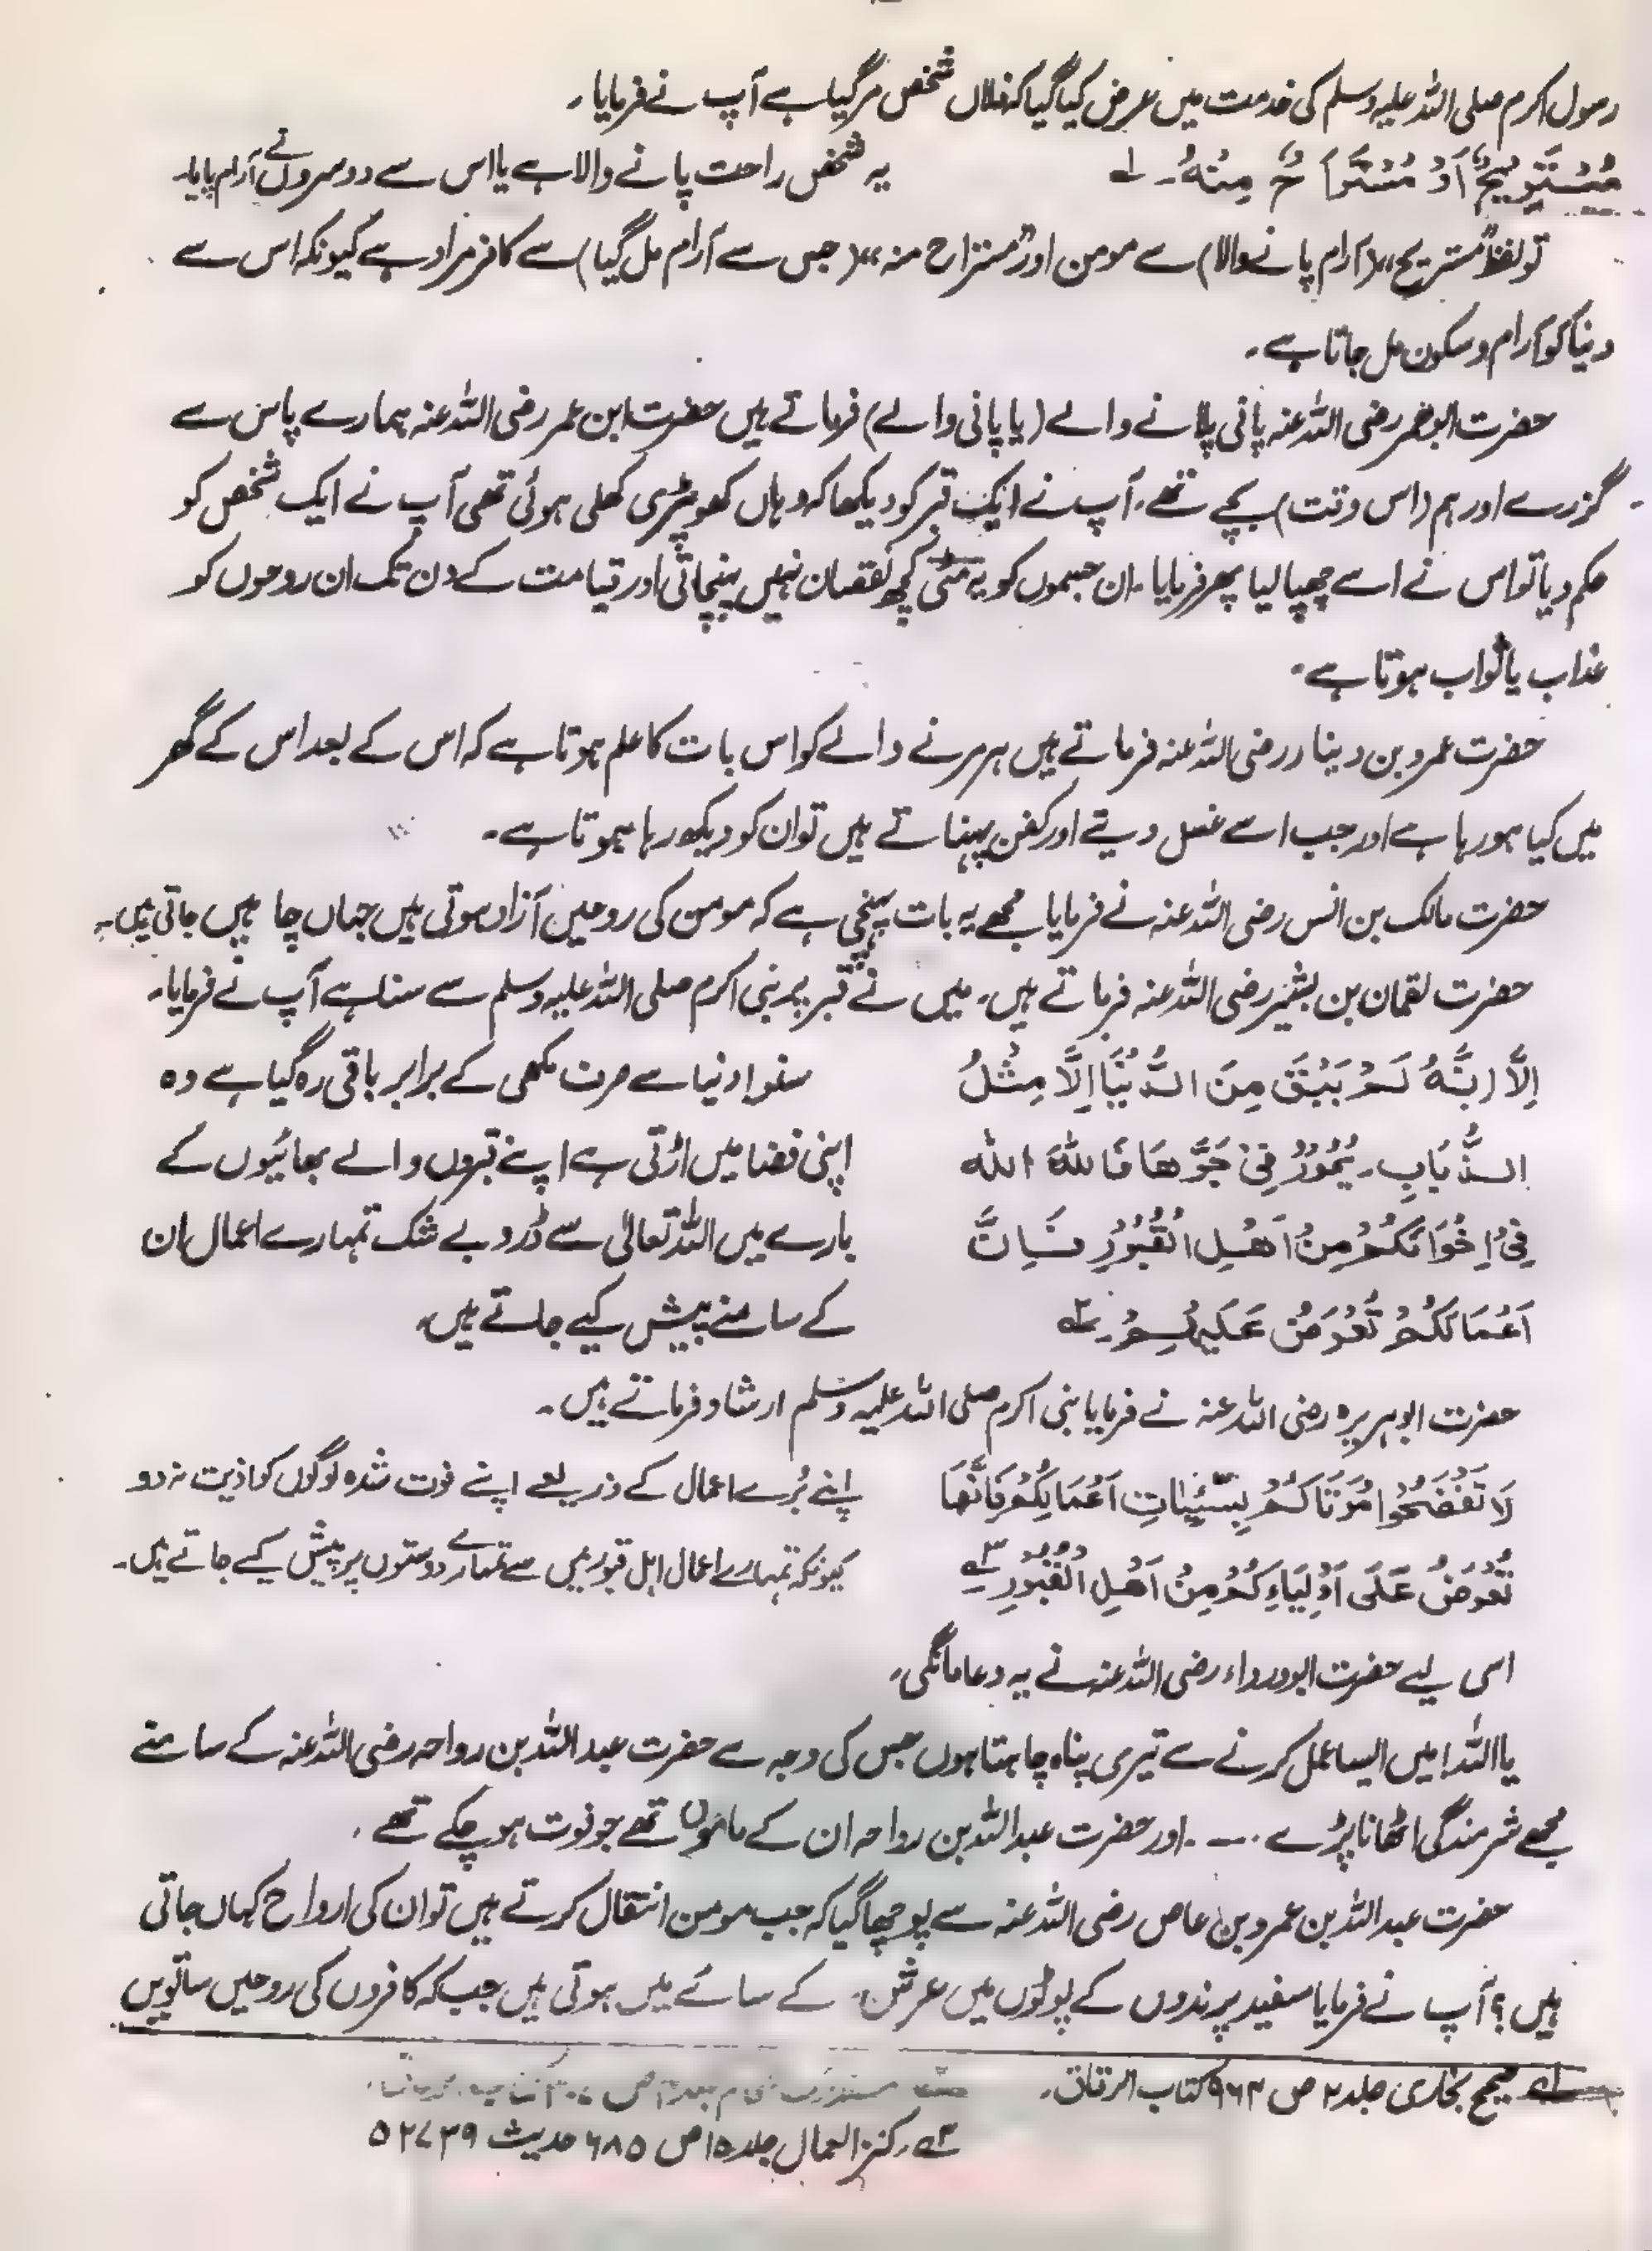 رسول اکرم صلی اللہ علیہ وسلم کی خدمت میں عرض کیا گیا کہ فلاں شخص مر گیا ہے آپ نے فرمایا۔
مُسْتَرِیْحٌ اَوْ مُسْتَرَاحٌ مِنْہُ۔ ؎۱ یہ شخص راحت پانے والا ہے یا اس سے دوسروں نے آرام پایا۔
تو لفظ ”مستریح“ (آرام پانے والا) سے مومن اور ”مستراح منہ“ (جس سے آرام مل گیا) سے کافر مراد ہے کیونکہ اس سے
دنیا کو آرام و سکون مل جاتا ہے۔
حضرت ابو خمر رضی اللہ عنہ پانی پلانے والے (یا پانی والے) فرماتے ہیں حضرت ابن عمر رضی اللہ عنہ ہمارے پاس سے
گزرے اور ہم (اس وقت) بچے تھے۔ آپ نے ایک قبر کو دیکھا کہ وہاں کھوپڑی کھلی ہوئی تھی آپ نے ایک شخص کو
حکم دیا تو اس نے اسے چھپا لیا پھر فرمایا۔ ان جسموں کو یہ مٹی کچھ نقصان نہیں پہنچاتی اور قیامت کے دن تک ان روحوں کو
عذاب یا ثواب ہوتا ہے۔
حضرت عمرو بن دینار رضی اللہ عنہ فرماتے ہیں ہر مرنے والے کو اس بات کا علم ہوتا ہے کہ اس کے بعد اس کے گھر
میں کیا ہو رہا ہے اور جب اسے غسل دیتے اور کفن پہناتے ہیں تو ان کو دیکھ رہا ہوتا ہے۔
حضرت مالک بن انس رضی اللہ عنہ نے فرمایا مجھے یہ بات پہنچی ہے کہ مومن کی روحیں آزاد ہوتی ہیں جہاں چاہیں جاتی ہیں۔
حضرت لقمان بن بشیر رضی اللہ عنہ فرماتے ہیں۔ میں نے قبر پر نبی اکرم صلی اللہ علیہ وسلم سے سنا ہے آپ نے فرمایا۔
اِلَّا اِنَّہٗ لَمْ یَبْقَ مِنَ الدُّنْیَا اِلَّا مِثْلُ سنو! دنیا سے صرف مکھی کے برابر باقی رہ گیا ہے وہ
الذُّبَابِ۔ یَمُوْرُ فِیْ جَوِّھَا فَاللّٰہَ اللّٰہَ اپنی فضا میں اڑتی ہے اپنے قبروں والے بھائیوں کے
فِیْ اِخْوَانِکُمْ مِنْ اَھْلِ الْقُبُوْرِ فَاِنَّ بارے میں اللہ تعالیٰ سے ڈرو بے شک تمہارے اعمال ان
اَعْمَالَکُمْ تُعْرَضُ عَلَیْھِمْ۔ ؎۲ کے سامنے پیش کیے جاتے ہیں۔
حضرت ابوہریرہ رضی اللہ عنہ نے فرمایا نبی اکرم صلی اللہ علیہ وسلم ارشاد فرماتے ہیں۔
لَا تَفْضَحُوا مَوْتَاکُمْ بِسَیِّئَاتِ اَعْمَالِکُمْ فَاِنَّھَا اپنے بُرے اعمال کے ذریعے اپنے فوت شدہ لوگوں کو اذیت نہ دو
تُعْرَضُ عَلَی اَوْلِیَاءِکُمْ مِنْ اَھْلِ الْقُبُوْرِ ؎۳ کیونکہ تمہارے اعمال اہل قبور میں سے تمہارے دوستوں پر پیش کیے جاتے ہیں۔
اسی لیے حضرت ابودرداء رضی اللہ عنہ نے یہ دعا مانگی۔
یا اللہ! میں ایسا عمل کرنے سے تیری پناہ چاہتا ہوں جس کی وجہ سے حضرت عبداللہ بن رواحہ رضی اللہ عنہ کے سامنے
مجھے شرمندگی اٹھانا پڑے ۔۔۔ اور حضرت عبداللہ بن رواحہ ان کے ماموں تھے جو فوت ہو چکے تھے۔
حضرت عبداللہ بن عمرو بن عاص رضی اللہ عنہ سے پوچھا گیا کہ جب مومن انتقال کرتے ہیں تو ان کی ارواح کہاں جاتی
ہیں؟ آپ نے فرمایا سفید پرندوں کے پوٹوں میں عرش کے سائے میں ہوتی ہیں جب کہ کافروں کی روحیں ساتویں
؎۱ صحیح بخاری جلد ۲ ص ۹۶۴ کتاب الرقاق۔ ؎۲ مستدرک جلد ۴ ص ۳۰۷
؎۳۔ کنز العمال جلد ۱۵ ص ۶۸۵ حدیث ۵۲۷۳۹